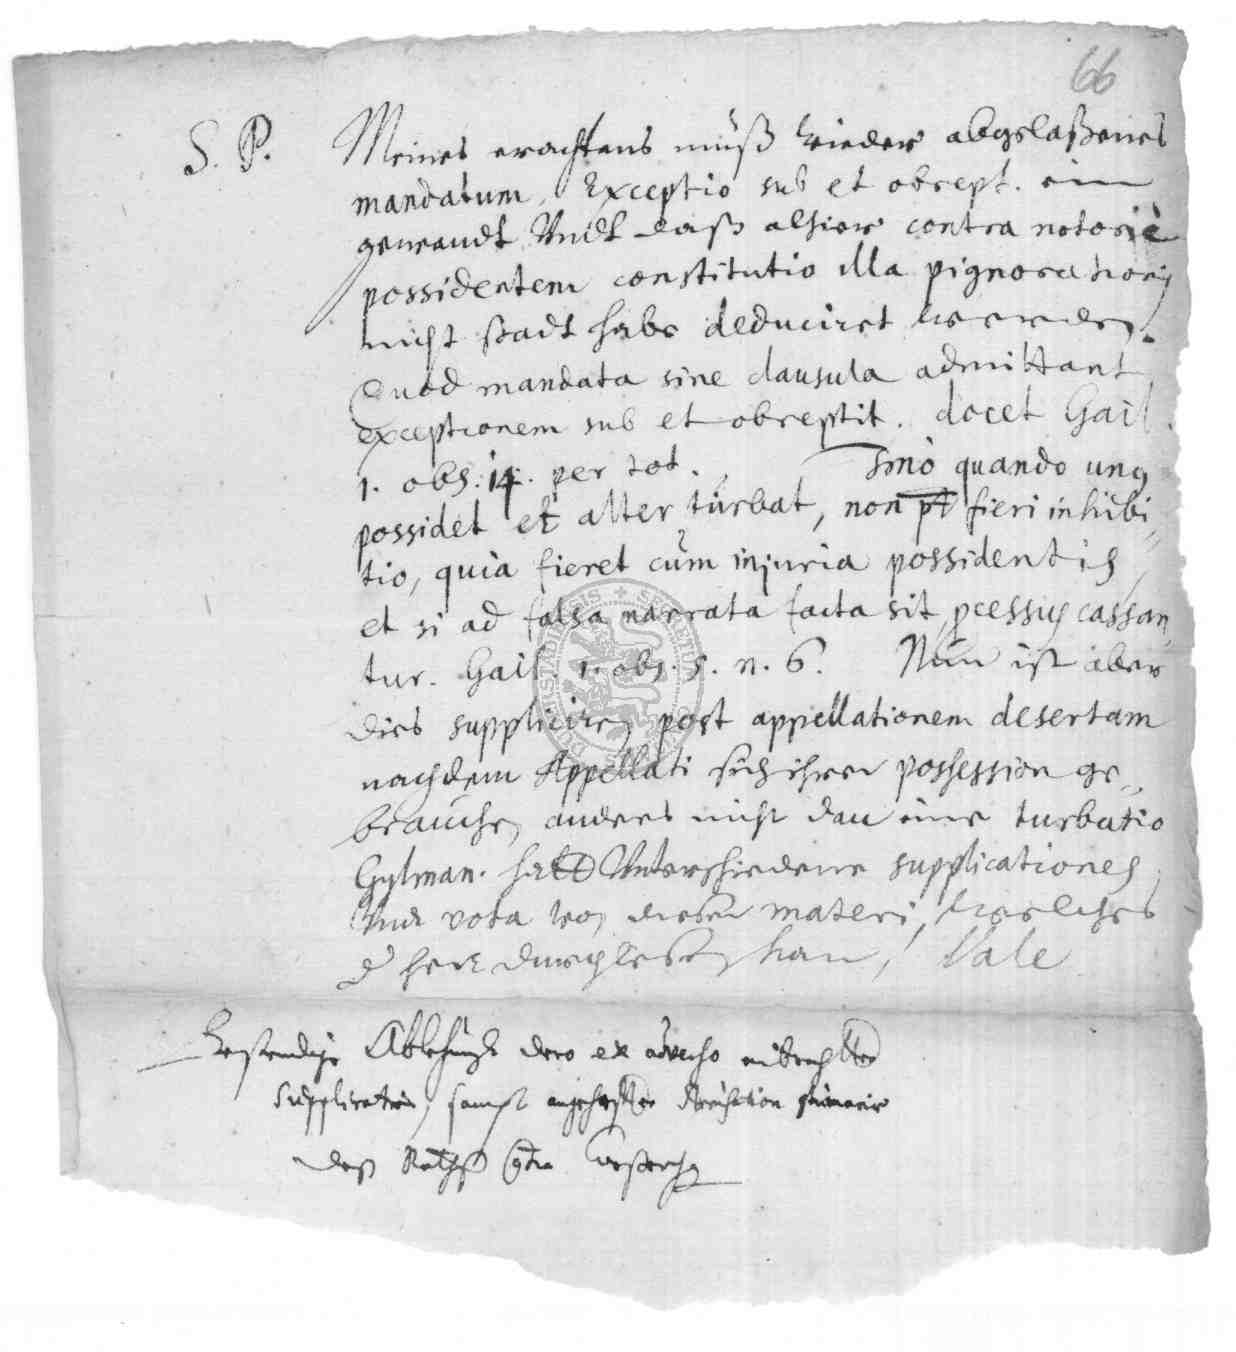 66
S. P. Meines erachtens muß wieder abgelaßenes
mandatum, Exceptio sub et obrept. ein
gewandt Undt daß alhier contra notoriè
possidentem constitutio illa pignorationis
nicht stadt habe deduciret werden.
Quod mandata sine clausula admittant
exceptionem sub et obreptit. docet Gail.
1. obs. 14. per tot. Imò quando unus
possidet et alter turbat, non pt fieri inhibi-
tio, quia fieret cum injuria possidentis
et si ad falsa narrata facta sit, processus cassan
tur. Gail. 1. obs. 5. n. 6. Nun ist aber
dies suppliciren post appellationem desertam
nachdem Appellati sich ihrer possession ge-
brauchen anders nicht dan eine turbatio
Gylman. hatt Unterschiedene supplicationes
Und vota von dieser materi, welches
d herr durchlesen kan, Vale
Ablehnung dero ex adverso
Supplication, sampt angehefter
deß Raths contra